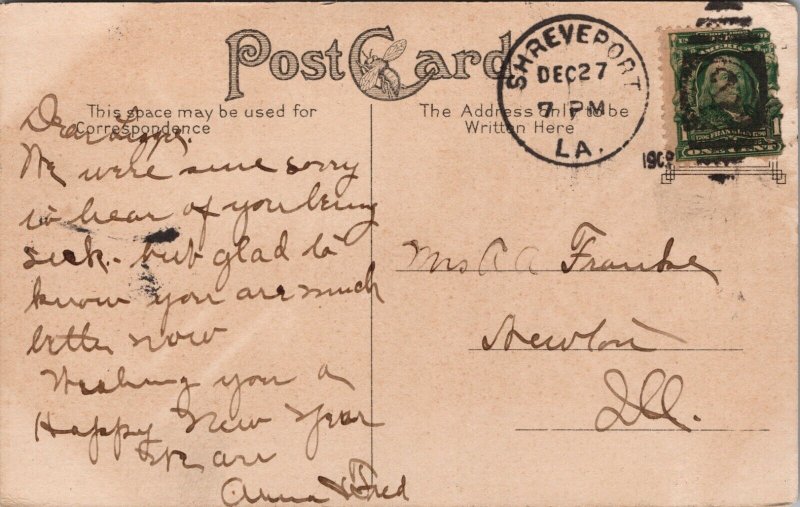 Post Card
SHREVEPORT
DEC 27
7 PM
LA.
190
2
1706 FRANKLIN 1790
ONE CENT
This space may be used for
Correspondence
The Address only to be
Written Here
Dear
We were sure sorry
to hear of you being
sick. but glad to
know you are much
better now
Wishing you a
Happy New Year
We are
Anna & Fred
Mrs A A Franke
Newton
Ill.